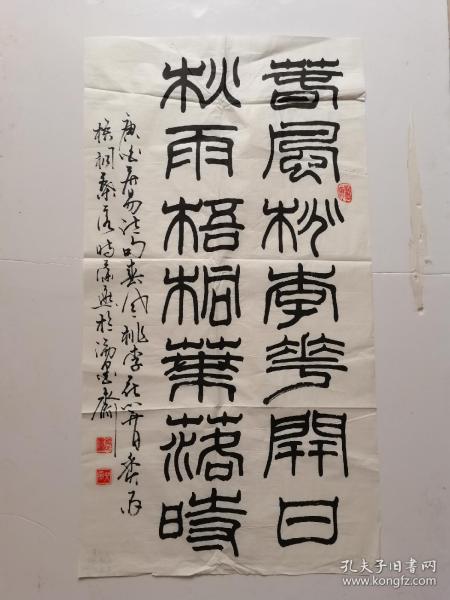 春風桃李花開日
秋雨梧桐葉落時
唐白居易詩句春風桃李花開日秋雨
梧桐葉落時
孔夫子旧书网
www.kongfz.com